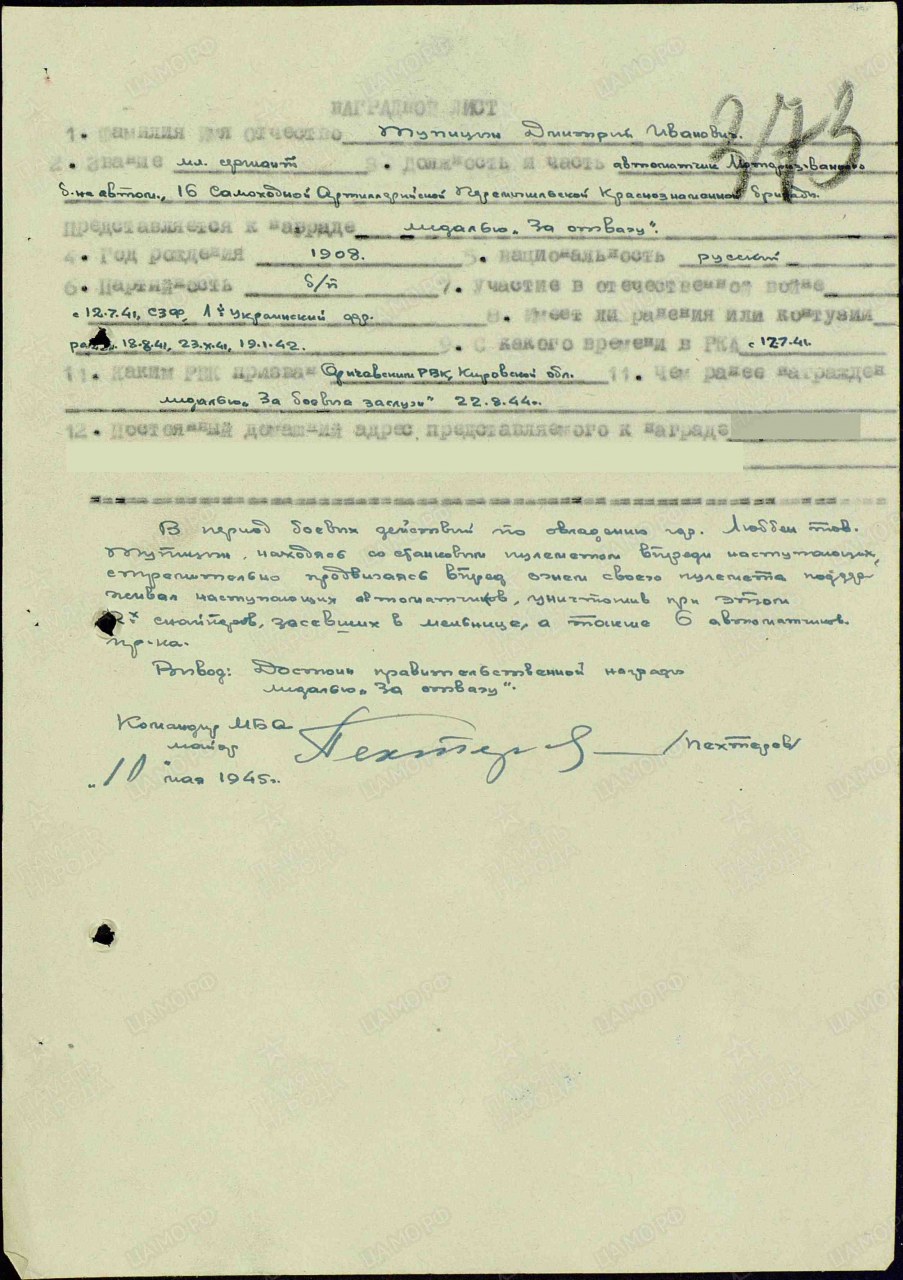 373
НАГРАДНОЙ ЛИСТ
1. Фамилия Имя Отчество Тупицын Дмитрий Иванович.
2. Звание мл. сержант 3. Должность и часть автоматчик Моторизванного
б-на автом., 16 Самоходной Артиллерийской Перемышльской Краснознаменной бригады.
Представляется к награде медалью „За отвагу“.
4. Год рождения 1908. 5. национальность русский
6. Партийность б/п 7. Участие в отечественной войне
с 12.7.41, СЗФ, 1й Украинский фр. 8. Имеет ли ранения или контузии
18.8.41, 23.X.41, 19.1.42. 9. С какого времени в РКА с 12.7.41.
11. Каким РВК призван РВК, Кировской обл. 11. Чем ранее награжден
медалью „За боевые заслуги“ 22.8.44г.
12. Постоянный домашний адрес представляемого к награде
В период боевых действий по овладению гор. Люббен тов.
Тупицын, находясь со станковым пулеметом впереди наступающих,
стремительно продвигаясь вперед огнем своего пулемета поддер
живал наступающих автоматчиков, уничтожив при этом
2х снайперов, засевших в мельнице, а также 6 автоматчиков
пр-ка.
Вывод: Достоин правительственной награды
медалью „За отвагу“.
Командир МБА
майор Пехтеров /Пехтеров/
„10“ мая 1945г.
ЦАМО РФ
ПАМЯТЬ НАРОДА